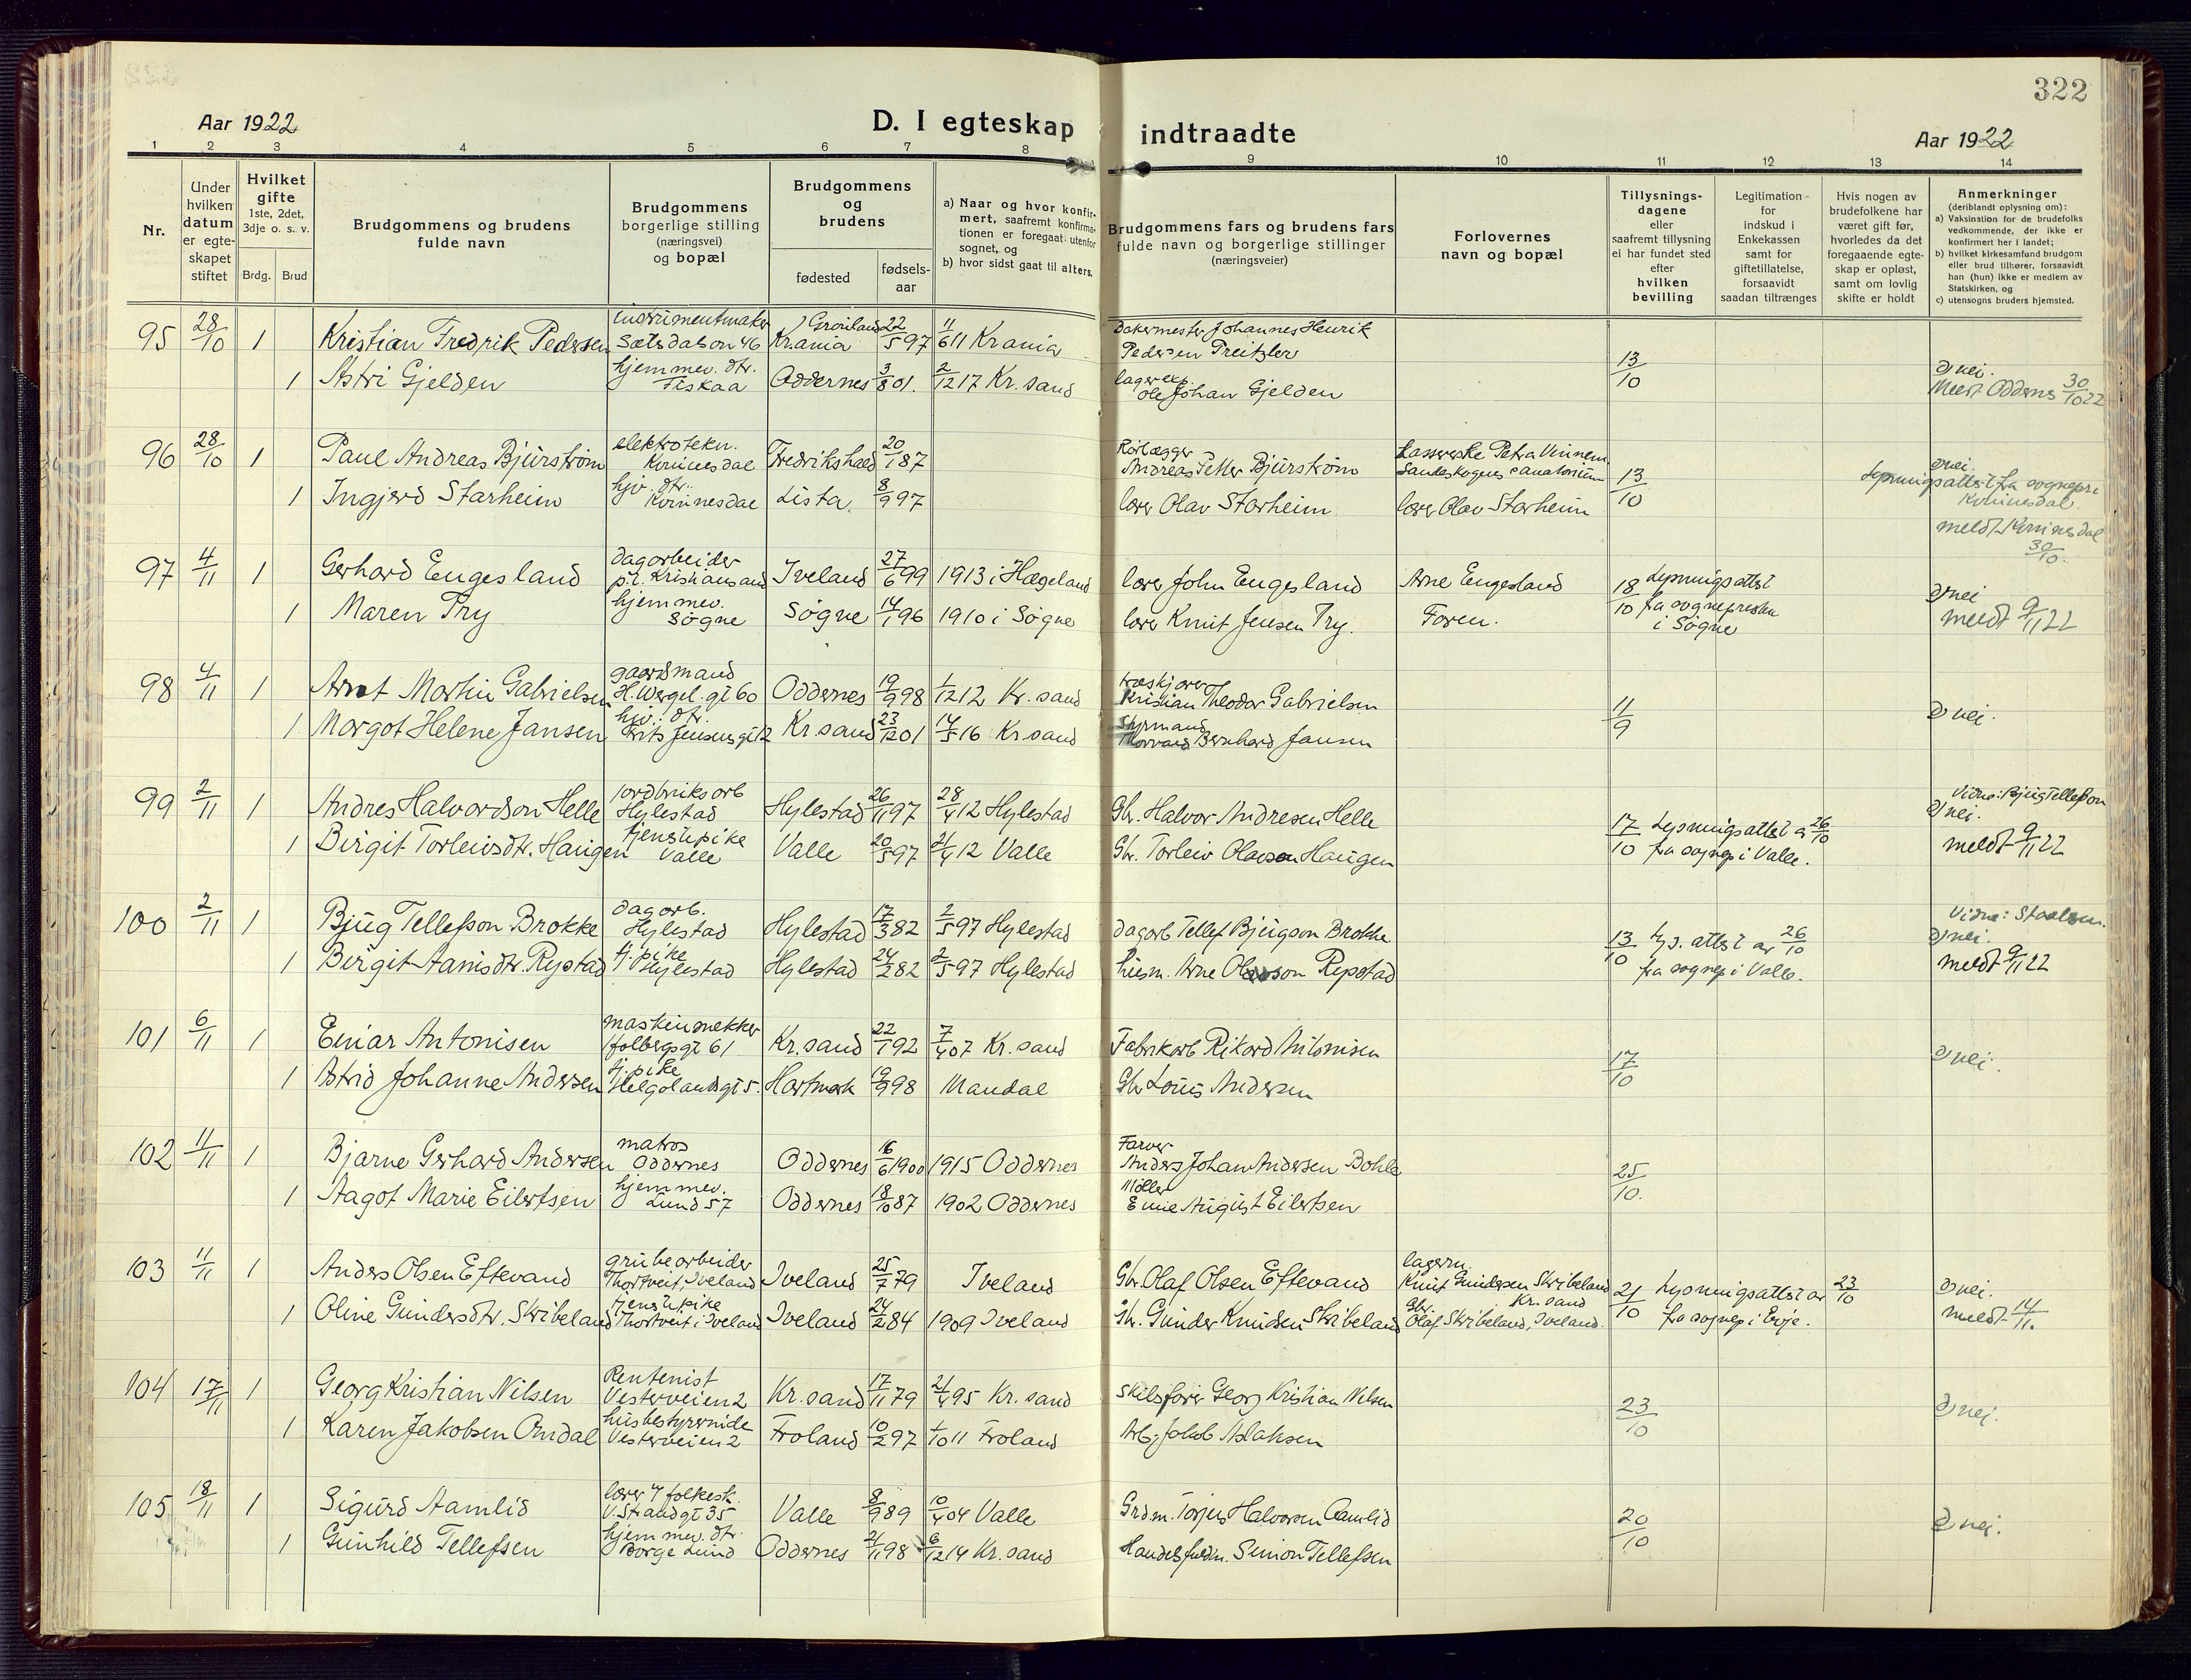 322
Aar 1922
D. I egteskap indtraadte
Aar 1922
1 2 3 4 5 6 7 8 9 10 11 12 13 14
Nr.
Under hvilken datum er egteskapet stiftet
Hvilket gifte 1ste, 2det, 3dje o. s. v.
Brdg. Brud
Brudgommens og brudens fulde navn
Brudgommens borgerlige stilling (næringsvei) og bopæl
Brudgommens og brudens
fødested
fødsels-aar
a) Naar og hvor konfirmert, saafremt konfirmationen er foregaat utenfor sognet, og
b) hvor sidst gaat til alters.
Brudgommens fars og brudens fars fulde navn og borgerlige stillinger (næringsveier)
Forlovernes navn og bopæl
Tillysnings-dagene eller saafremt tillysning ei har fundet sted efter hvilken bevilling
Legitimation for indskud i Enkekassen samt for giftetillatelse, forsaavidt saadan tiltrænges
Hvis nogen av brudefolkene har været gift før, hvorledes da det foregaaende egteskap er opløst, samt om lovlig skifte er holdt
Anmerkninger (deriblandt oplysning om):
a) Vaksination for de brudefolks vedkommende, der ikke er konfirmert her i landet;
b) hvilket kirkesamfund brudgom eller brud tilhører, forsaavidt han (hun) ikke er medlem av Statskirken, og
c) utensogns bruders hjemsted.
95 28/10 1 Kristian Fredrik Pedersen instrumentmaker Sætsdalson 46 Grønland Kr.ania 22/5 97 11/6 11 Krania Bakermester Johannes Henrik Pedersen Treitzler 13/10
1 Astri Gjelden hjemmev. dtr. Fiskaa Oddernes 3/8 01. 2/12 17 Kr. sand lagerexp. Ole Johan Gjelden d) nei. Meldt Oddernes 30/10 22
96 28/10 1 Paul Andreas Bjurstrøm elektrotekn. Kvinesdal Fredrikshald 20/1 87 Rørlægger Andreas Petter Bjurstrøm Kassererske Petra Vinnem. Landeskogens sanatorium 13/10 d) nei. Lysningsattest fra sognepr i Kvinesdal.
1 Ingjerd Starheim hjv. dtr. Kvinnesdal Lista. 8/9 97 lærer Olav Starheim lærer Olav Starheim meldt Kvinesdal 30/10.
97 4/11 1 Gerhard Engesland dagarbeider p.t. Kristiansand Iveland 27/6 99 1913 i Hægeland lærer John Engesland Arne Engesland 18/10 Lysningsattest fra sognepresten i Søgne d) nei
1 Maren Try hjemmev. Søgne Søgne 14/1 96 1910 i Søgne lærer Knut Jensen Try. Faren. meldt 9/11 22
98 4/11 1 Arnt Martin Gabrielsen gaardsmand H. Wergel. gt 60 Oddernes 19/9 98 1/12 12 Kr. sand Kristian Theodor Gabrielsen 11/9
1 Margot Helene Jansen hjv. dtr. Frits Jensens gt 12 Kr. sand 23/12 01 14/5 16 Kr sand Styrmand Thorvald Bernhard Jansen d) nei.
99 2/11 1 Andres Halvordson Helle jordbruksarb Hylestad Hylestad 26/11 97 28/4 12 Hylestad Gbr. Halvor Andresen Helle 17/10 Lysningsattest av 26/10 fra sognep i Valle. Vidne: Bjug Tellefson d) nei.
1 Birgit Torleivsdtr. Haugen tjenstepike Valle Valle 20/5 97 21/4 12 Valle Gbr. Torleiv Olavson Haugen meldt 9/11 22
100 2/11 1 Bjug Tellefson Brokke dagarb. Hylestad Hylestad 17/3 82 2/5 97 Hylestad dagarb Tellef Bjugson Brokke 13/10 lys. attest av 26/10 fra sognep i Valle. Vidne: d) nei.
1 Birgit Aanisdtr. Rystad tj. pike Hylestad Hylestad 24/2 82 2/5 97 Hylestad husm. Arne Olavson Rystad meldt 9/11 22
101 6/11 1 Einar Antonisen maskinsnekker Holbergsgt 61 Kr. sand 22/1 92 7/4 07 Kr. sand Fabrikarb Rikard Antonisen 17/10 d) nei.
1 Astrid Johanne Andersen tj. pike Helgolandsgt 5. Hartmark 19/9 98 Mandal Gbr Louis Andersen
102 11/11 1 Bjarne Gerhard Andersen matros Oddernes Oddernes 16/6 1900 1915 Oddernes Farver Anders Johan Andersen Bohle 25/10.
1 Aagot Marie Eilertsen hjemmev. Lund 57 Oddernes 18/10 87 1902 Oddernes Møller Emil August Eilertsen
103 11/11 1 Anders Olsen Eftevand grubearbeider Thortveit, Iveland Iveland 25/7 79 Iveland Gbr. Olaf Olsen Eftevand lagerm. Knut Gundersen Skribeland Kr. sand 21/10 Lysningsattest av 23/10 fra sognep i Evje. d) nei.
1 Oline Gundersdtr. Skribeland tjenstepike Thortveit i Iveland Iveland 24/2 84 1909 Iveland Gbr. Gunder Knudsen Skribeland Gbr. Olaf Skribeland, Iveland. meldt 14/11.
104 17/11 1 Georg Kristian Nilsen Rentenist Vesterveien 2 Kr. sand 17/11 79 21/4 95 Kr. sand Skibsfører Georg Kristian Nilsen 23/10 d) nei.
1 Karen Jakobsen Omdal husbestyrerinde Vesterveien 2 Froland 10/2 97 1/10 11 Froland Arb. Jakob Aslaksen
105 18/11 1 Sigurd Aamlid lærer v folkesk. V. Strandgt 35 Valle 8/9 89 10/4 04 Valle Grdm. Torjus Halvorsen Aamlid 20/10 d) nei.
1 Gunhild Tellefsen hjemmev. dtr. Borge Lund Oddernes 21/11 98 6/12 14 Kr. sand Handelsfuldm. Simon Tellefsen